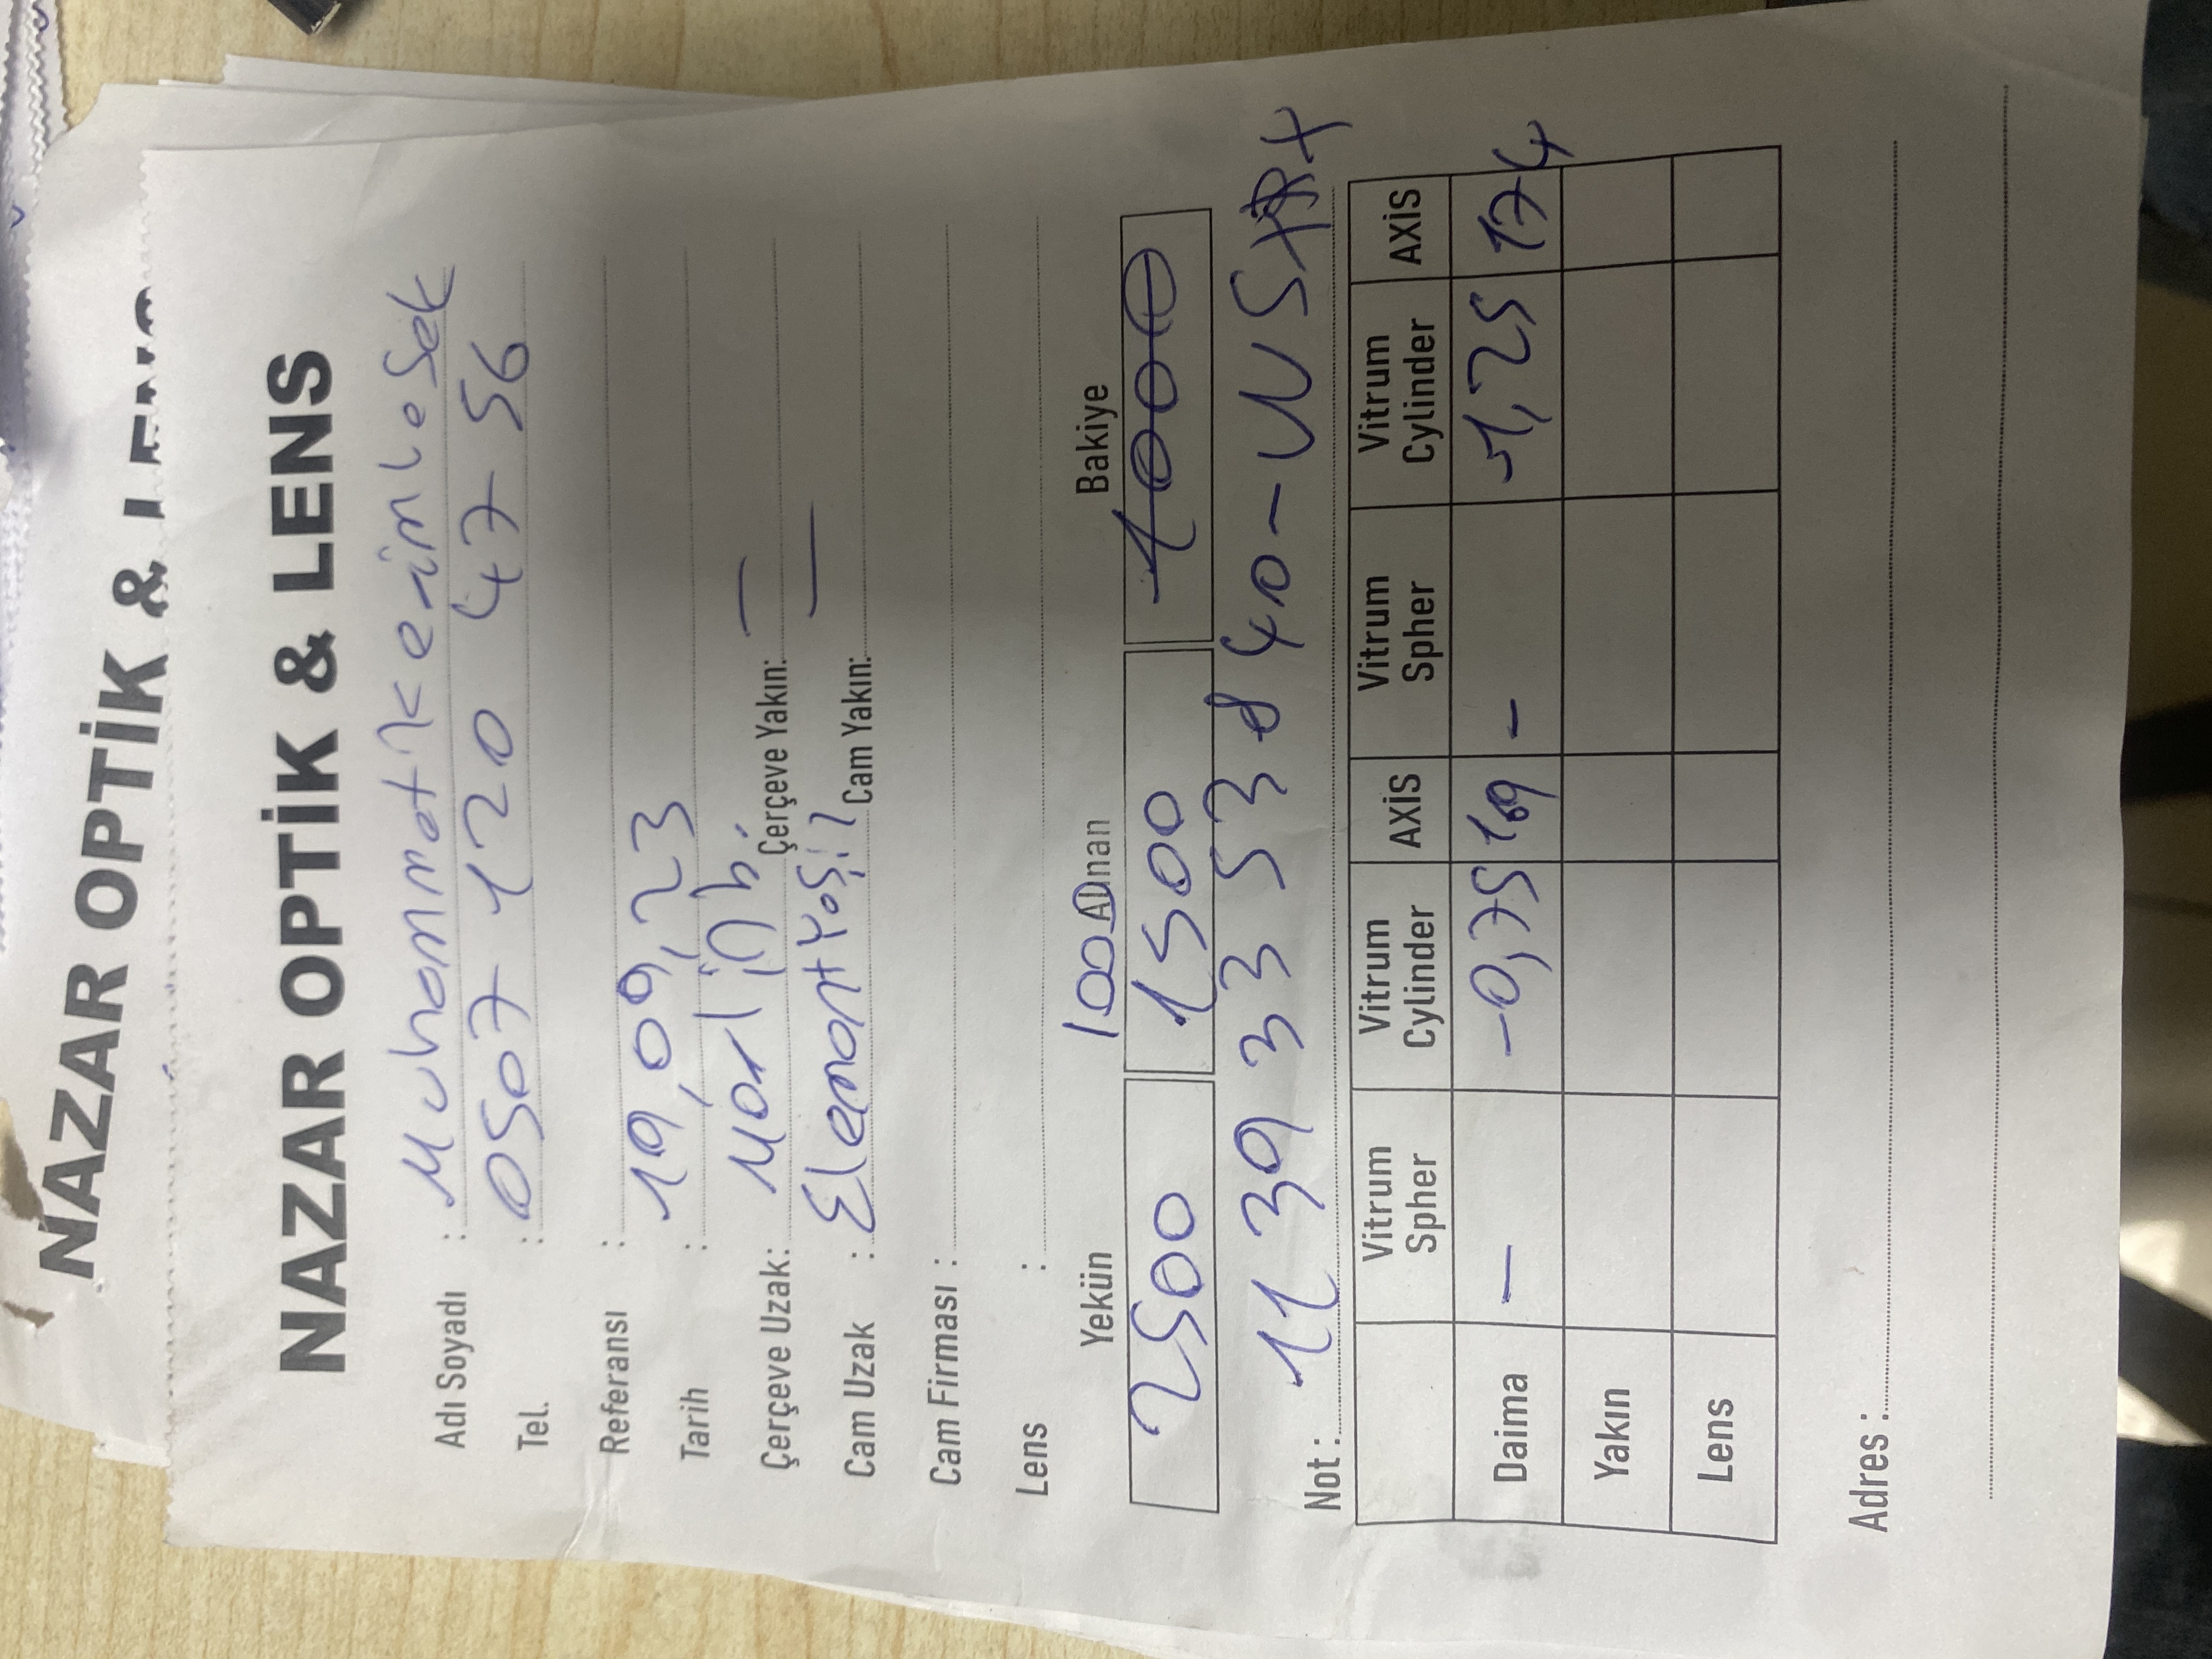 NAZAR OPTİK & LENS
NAZAR OPTİK & LENS
Adı Soyadı : Muhammet Kerim
Tel. : 0507 120 47 56
Referansı :
Tarih : 19,09,23
Çerçeve Uzak: Çerçeve Yakın: —
Cam Uzak : Element Yeşil Cam Yakın: —
Cam Firması :
Lens :
Yekün 1000 Alınan Bakiye
2500 1500 1000
Not : 11 39 33 53 840-
Vitrum Spher Vitrum Cylinder AXİS Vitrum Spher Vitrum Cylinder AXİS
Daima - -0,75 169 - -1,25 174
Yakın
Lens
Adres :